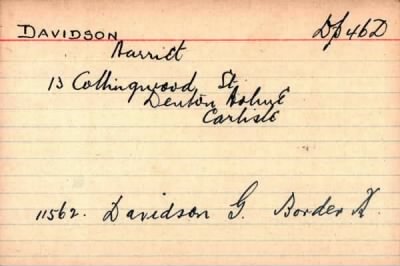 DAVIDSON D/46D
Harriet
13 Collingwood St
Denton Holme
Carlisle
11562. Davidson G. Border R.